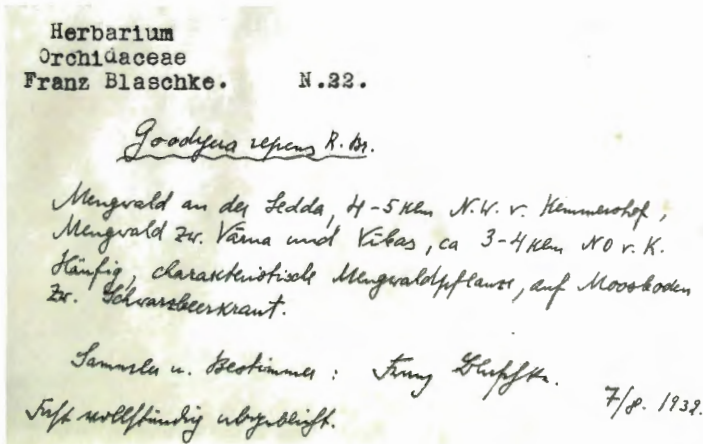 Herbarium
Orchidaceae
Franz Blaschke. N.22.
Goodyera repens R. Br.
Mengwald an der Sedda, 4-5 Klm N.W. v. Hemmershof,
Mengwald zw. Vārna und Vības, ca 3-4 Klm NO v. K.
Häufig, charakteristische Mengwaldpflanze, auf Moosboden
zw. Schwarzbeerkraut.
Sammler u. Bestimmer : Franz Blaschke.
7/8. 1932.
Fast vollständig abgeblüht.